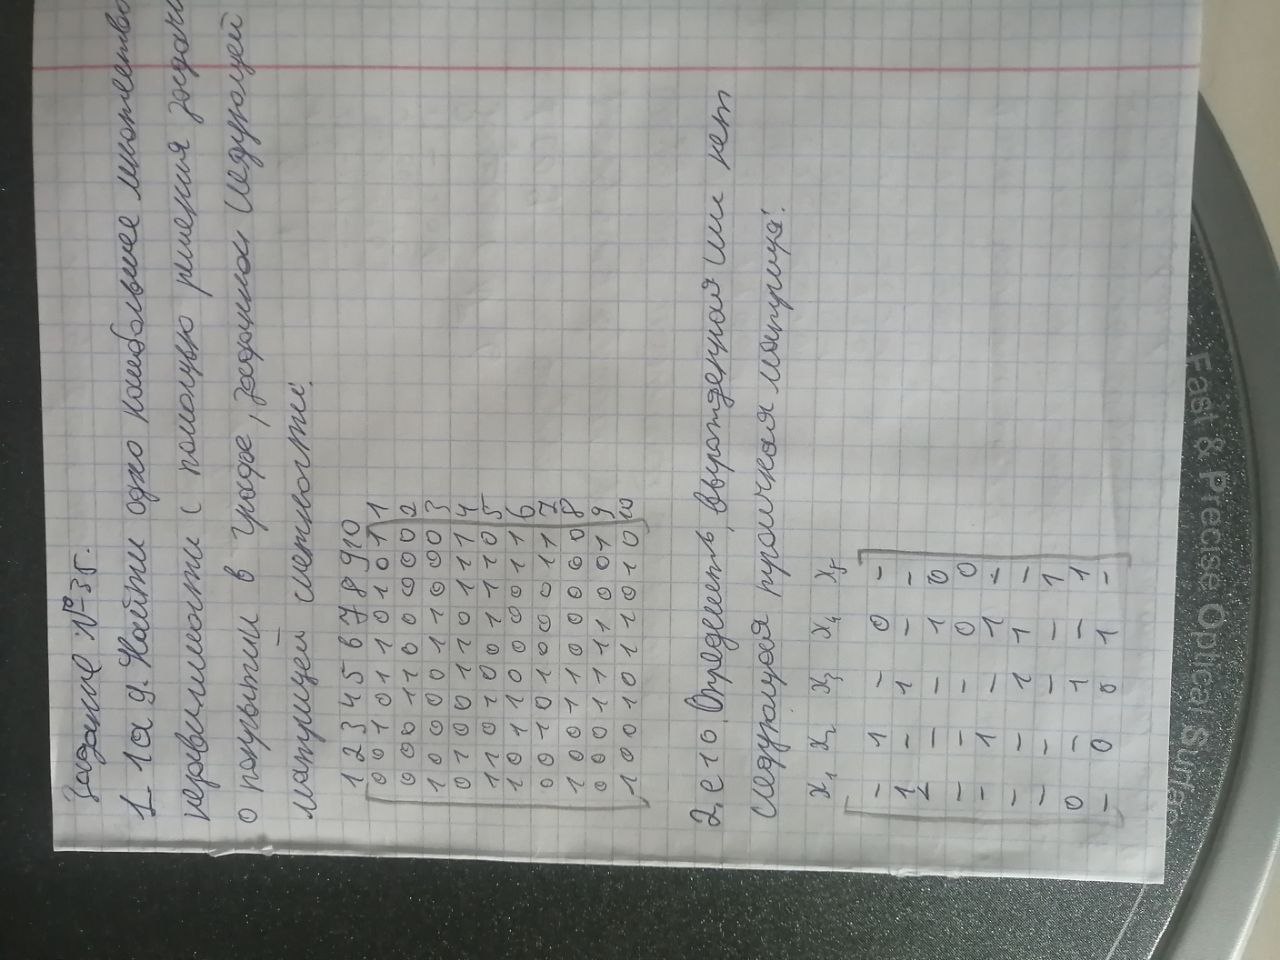 Задание №35.
1 1а д. Найти одно наибольшее множество
независимости с помощью решения задачи
о покрытии в графе, заданном следующей
матрицей смежности:
1 2 3 4 5 6 7 8 9 10
0 0 1 0 1 1 0 1 0 1 1
0 0 0 1 1 0 0 0 0 0 2
1 0 0 0 0 1 1 0 0 0 3
0 1 0 0 1 1 0 1 1 1 4
1 1 0 1 0 0 1 1 1 0 5
1 0 1 1 0 0 0 0 1 1 6
0 0 1 0 1 0 0 0 1 1 7
1 0 0 1 1 0 0 0 0 0 8
0 0 0 1 1 1 1 0 0 1 9
1 0 0 1 0 1 1 0 1 0 10
2. е 1 0. Определить, вырожденная или нет
следующая троичная матрица:
x1 x2 x3 x4 x5
- 1 - 0 -
1 - 1 - -
- - - 1 0
- - - 0 0
- 1 - 1 -
- - 1 1 -
- - - - 1
0 - 1 - 1
- 0 0 1 -
Fast & Precise Optical Surface